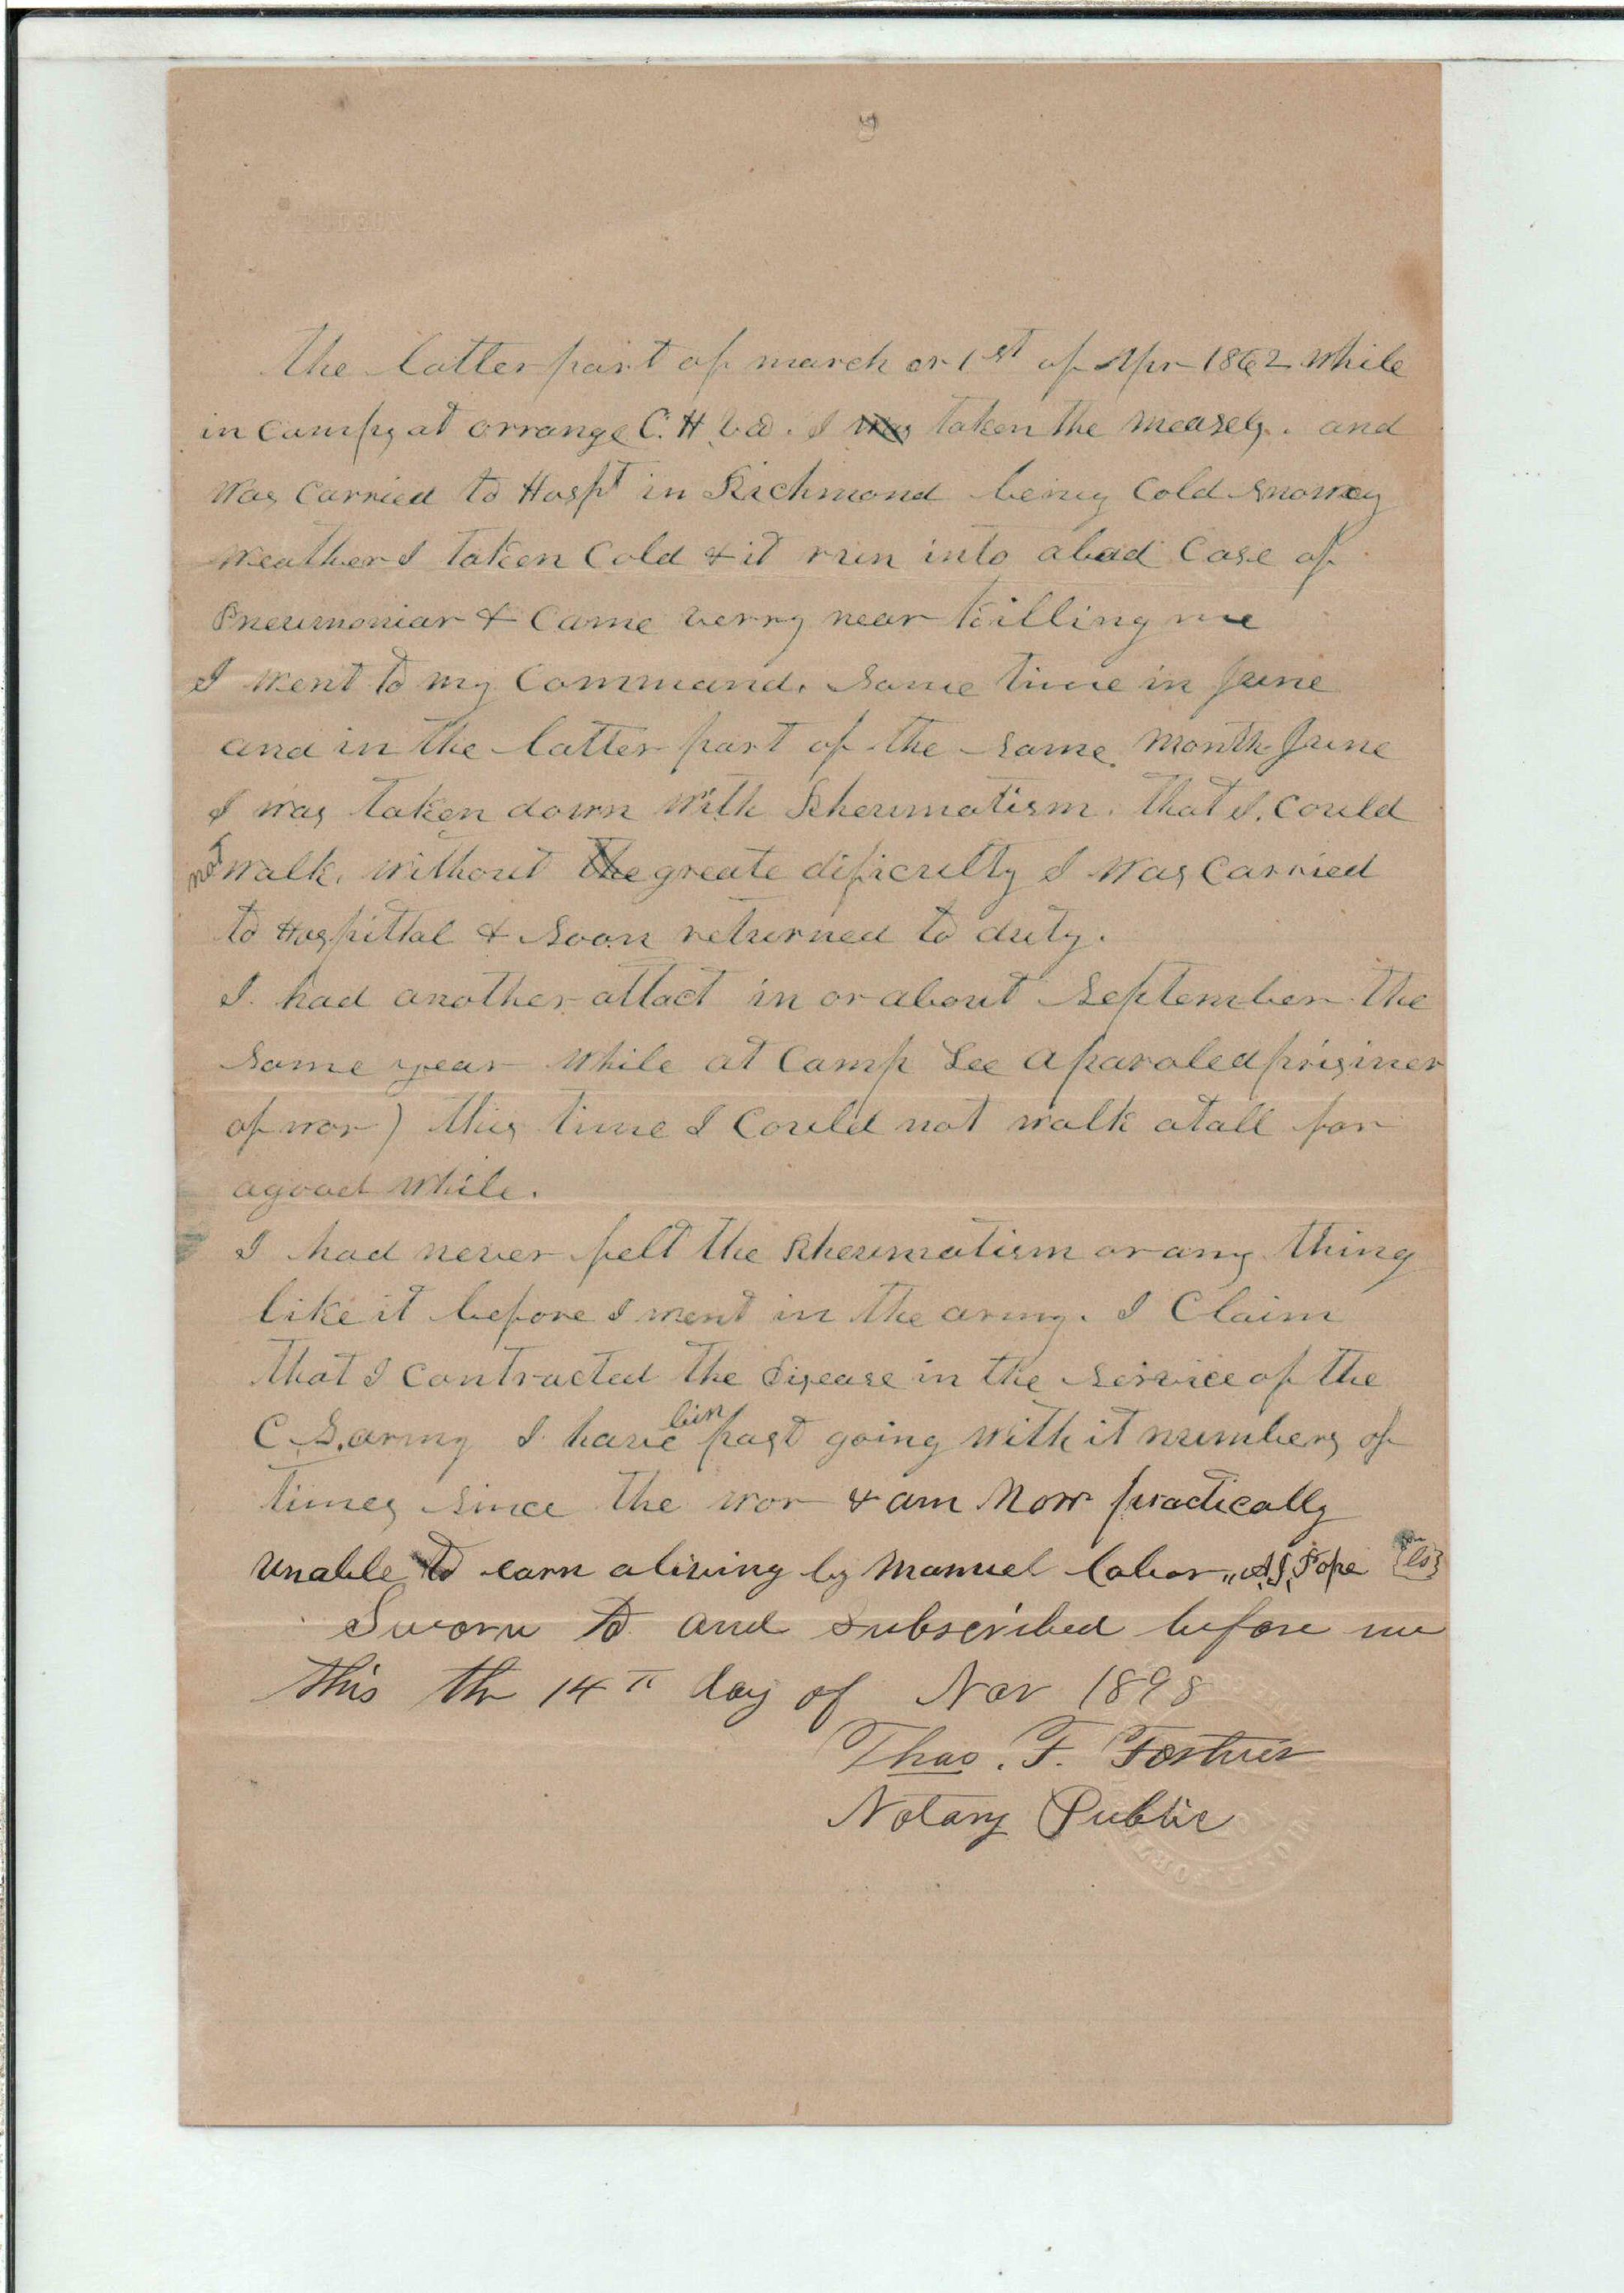 the latter part of march or 1st of Apr 1862 while
in camp at orrange C. H Va. I was taken the measels. and
was carried to Hospt in Richmond being cold snowey
weather I taken cold & it run into abad case of
Pneumoniar & came verry near killing me
I went to my command. some time in June
and in the latter part of the same month June
I was taken down with Rheumatism. that I. could
not walk. without the greate dificulty I was carried
to Hospittal & soon returned to duty.
I. had another attact in or about September the
same year while at Camp Lee a paroled prisiner
of war) this time I could not walk atall for
agood while.
I had never felt the Rheumatism or any thing
like it before I went in the army. I claim
that I contracted the disease in the service of the
C. S. army I have bin past going with it numbers of
times since the war & am now practically
unable to earn aliving by manuel labor " A. J. Pope {LS}
Sworn to and subscribed before me
this the 14th day of Nov 1898
Thos. F.
Notary Public